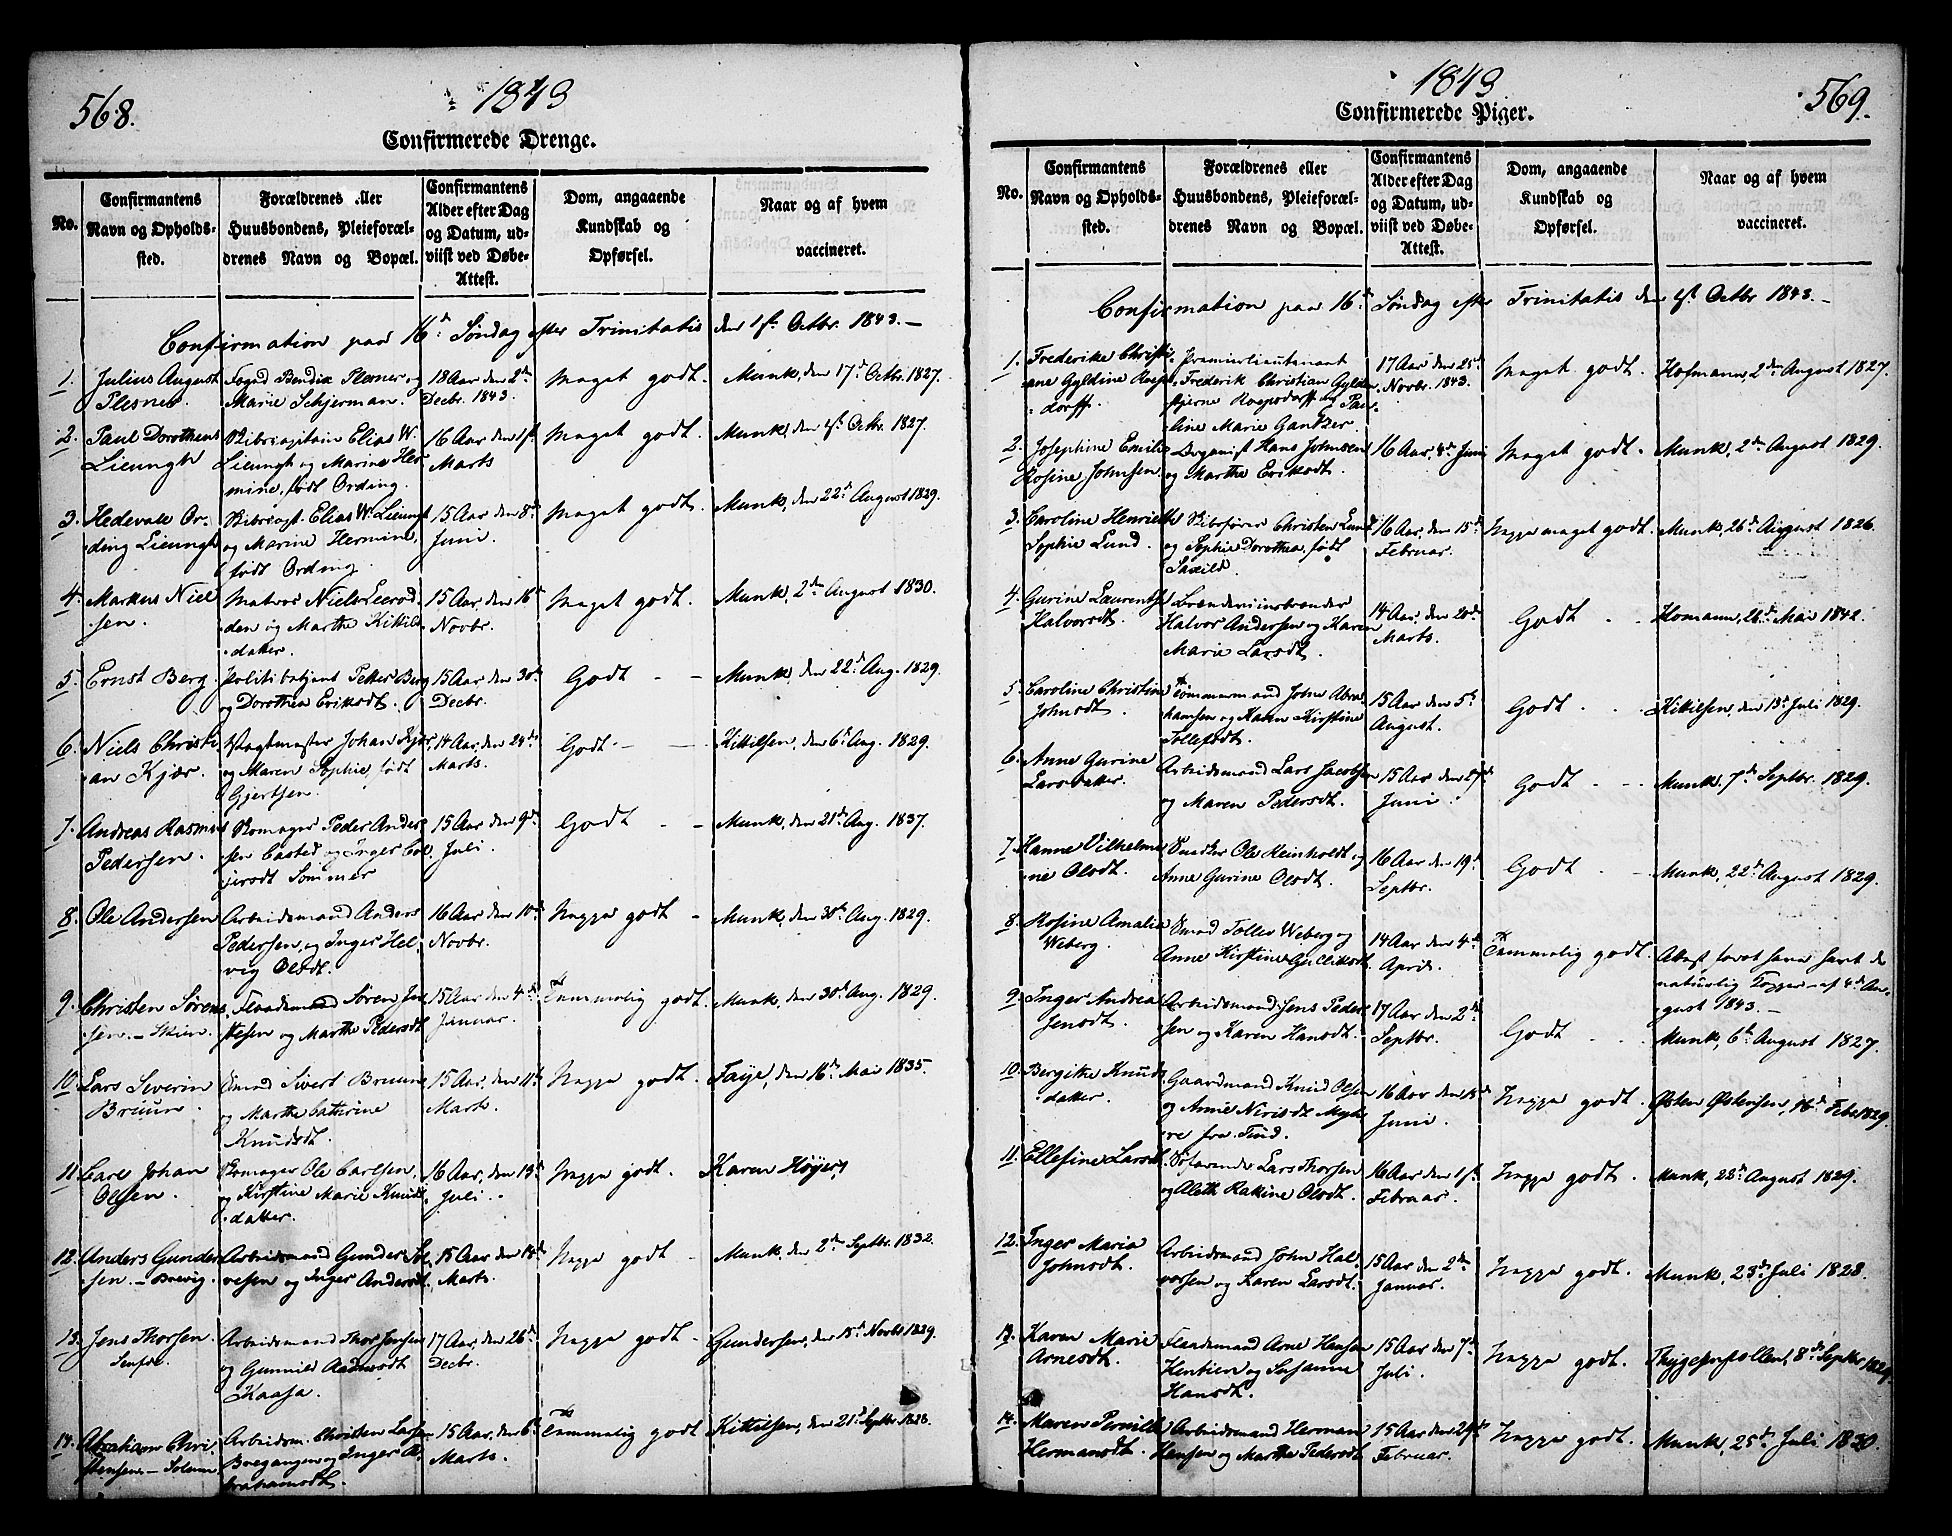 568.
1843
Confirmerede Drenge.
No.
Confirmantens
Navn og Opholds-
sted.
Forældrenes eller
Huusbondens, Pleieforæl-
drenes Navn og Bopæl.
Confirmantens
Alder efter Dag
og Datum, ud-
viist ved Døbe-
Attest.
Dom, angaaende
Kundskab og
Opførsel.
Naar og af hvem
vaccineret.
Confirmation paa 16d Søndag efter Trinitatis den 1st Octbr. 1843.
1. Julius August
Plesner.
Foged Bendix Plesner og
Marie Schjerman.
18 Aar den 2den
Decbr. 1843.
Meget godt.
Munk, den 17d Octbr. 1827.
2. Paul Dorotheus
Lieungh
Skibscapitain Elias W.
Lieungh og Marine Her-
mine, født Ording.
16 Aar den 1st
Marts
Meget godt.
Munk, den 1st Octbr. 1827.
3. Hedevale Or-
ding Lieungh
Skibscapt. Elias W. Lieungh
og Marine Hermine,
født Ording.
15 Aar den 8de
Juni.
Meget godt.
Munk, den 22d August 1829.
4. Markus Niel-
sen.
Niels
den og Marthe Kittils-
datter.
15 Aar, den 16d
Novbr.
Meget godt.
Munk, 2den August 1830.
5. Ernst Berg.
Politibetjent Petter Berg
og Dorothea Eriksdt.
15 Aar den 30te
Decbr.
Godt
Munk, den 22d Aug. 1829.
6. Niels Christi-
an Kjær.
Vagtmester Johan Kjær
og Maren Sophie, født
Gjertsen.
14 Aar, den 24de
Marts.
Godt
Kittilsen, den 6t Aug. 1829.
7. Andreas Rasmus
Pedersen.
Skomager Peder Ander-
sen Casted og Inger
Sommer
15 Aar den 9de
Juli.
Godt
Munk, den 21d Aug. 1837.
8. Ole Andersen
Arbeidsmand Anders
Pedersen, og Inger Hel-
vig Olsdt.
16 Aar den 10de
Novbr.
Nogge godt
Munk, den 30d Aug. 1829.
9. Christen Søren-
sen. – Skien.
Flaademand Søren
og Marthe Pedersdt.
15 Aar den 4de
Januar.
Temmelig godt.
Munk, den 30d Aug. 1829.
10. Lars Severin
Bruun.
Smed Sivert Bruun
og Marthe Cathrine
Knudsdt.
15 Aar, den 11te
Marts.
Nogge godt.
Faye, den 16de Mai 1835.
11. Carl Johan
Olsen.
Skomager Ole Carlsen
og Kirstine Marie Knuds-
datter.
16 Aar, den 13d
Juli.
Nogge godt.
Karen Høyer,
12. Anders Gunder-
sen. – Brevig.
Arbeidsmand Gunder Sol-
vesen og Inger Andersdt.
15 Aar, den 18de
Marts.
Nogge godt
Munk, den 2den Septbr. 1832.
13. Jens Thorsen.
Arbeidsmand Thor Jensen
og Gunnild Aadnesdt
Kaasa.
17 Aar, den 26d
Decbr.
Nogge godt
Gundersen, den 18d Novbr 1829.
14. Abraham Chri-
stensen. – Solum.
Arbeidsm. Christen Larsen
Bregangen og Inger A-
brahamsdt.
15 Aar, den 6te
Marts.
Temmelig godt
Kittilsen, den 21d Septbr. 1828.
1843
Confirmerede Piger.
569.
No.
Confirmantens
Navn og Opholds-
sted.
Forældrenes eller
Huusbondens, Pleieforæl-
drenes Navn og Bopæl.
Confirmantens
Alder efter Dag
og Datum, ud-
viist ved Døbe-
Attest.
Dom, angaaende
Kundskab og
Opførsel.
Naar og af hvem
vaccineret.
Confirmation paa 16d Søndag efter Trinitatis den 1st Octbr 1843.
1. Frederike Christi-
ane Gyldine Roeps-
dorff.
Premierlieutenant
Frederik Christian Gylden-
stjerne Roepsdorff og Pau-
line Marie Gantzer.
17 Aar den 25d
Novbr. 1843.
Meget godt.
Hofmann, 2den August 1827.
2. Josephine Emilie
Rosine Johnsen.
Organist Hans Johnsen
og Marthe Eriksdt.
16 Aar, 4de Juni
Meget godt.
Munk, 2den August 1829.
3. Caroline Henriette
Sophie Lund.
Skibsfører Christen Lund
og Sophie Dorothea, født
Saxild.
16 Aar, den 15d
Februar.
Nogge meget godt.
Munk, 26d August 1826.
4. Gurine Laurentse
Halvorsdt.
Brændeviinsbrænder
Halvor Andersen og Karen
Marie Larsdt.
14 Aar, den 20de
Marts.
Godt
Homann, 26d Mai 1842.
5. Caroline Christine
Johnsdt.
Tømmermand John Abra-
hamsen og Karen Kirstine
Tollefsdt.
15 Aar den 5t
August.
Godt
Kittilsen, den 13d Juli 1829.
6. Anne Gurine
Larsdatter.
Arbeidsmand Lars Jacobsen
og Maren Pedersdt.
15 Aar den 17d
Juni.
Godt
Munk, 7de Septbr. 1829.
7. Hanne Vilhelmi-
ne Olsdt.
Snedker Ole Reinholdt og
Anne Gurine Olsdt.
16 Aar den 19d
Septbr.
Godt
Munk, 22d August 1829.
8. Rosine Amalia
Weberg.
Smed Tollev Weberg og
Anne Kirstine Gulliksdt.
14 Aar den 4de
April.
Temmelig godt.
Attest for at have havt de
naturlig Kopper af 4d Au-
gust 1843.
9. Inger Andrea
Jensdt.
Arbeidsmand Jens Peder-
sen og Karen Hansdt.
17 Aar den 2d
Septbr.
Godt
Munk, 6t August 1827.
10. Bergithe Knuds-
datter.
Gaardmand Knud Olsen
og Anne Nerisdt
fra Tind.
16 Aar den 15d
Juni
Nogge godt.
Østen Østensen, 16d Febr 1829.
11. Ellefine Larsdt.
Søfarende Lars Thorsen
og Aleth Rakine Olsdt.
16 Aar den 1st
Februar.
Nogge godt.
Munk, 28d August 1829.
12. Inger Maria
Johnsdt.
Arbeidsmand John Hal-
vorsen og Karen Larsdt.
15 Aar den 2den
Januar.
Nogge godt.
Munk, 23d Juli 1828.
13. Karen Marie
Arnesdt.
Flaademand Arne Hansen
og Susanne
Hansdt.
15 Aar den 7d
Juli.
Nogge godt.
8de Septbr 1829.
14. Maren Pernille
Hermansdt.
Arbeidsmand Herman
Hansen og Marthe Pedersdt.
15 Aar den 24de
Februar.
Nogge godt.
Munk, 25d Juli 1830.